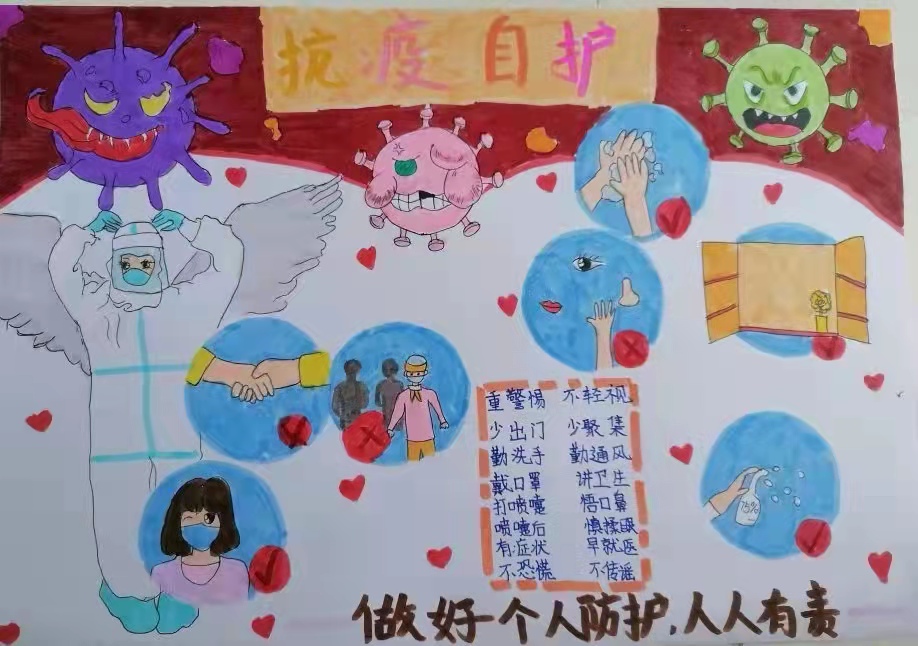 抗疫自护
重警惕 不轻视
少出门 少聚集
勤洗手 勤通风
戴口罩 讲卫生
打喷嚏 捂口鼻
喷嚏后 慎揉眼
有症状 早就医
不恐慌 不传谣
75%
做好个人防护,人人有责